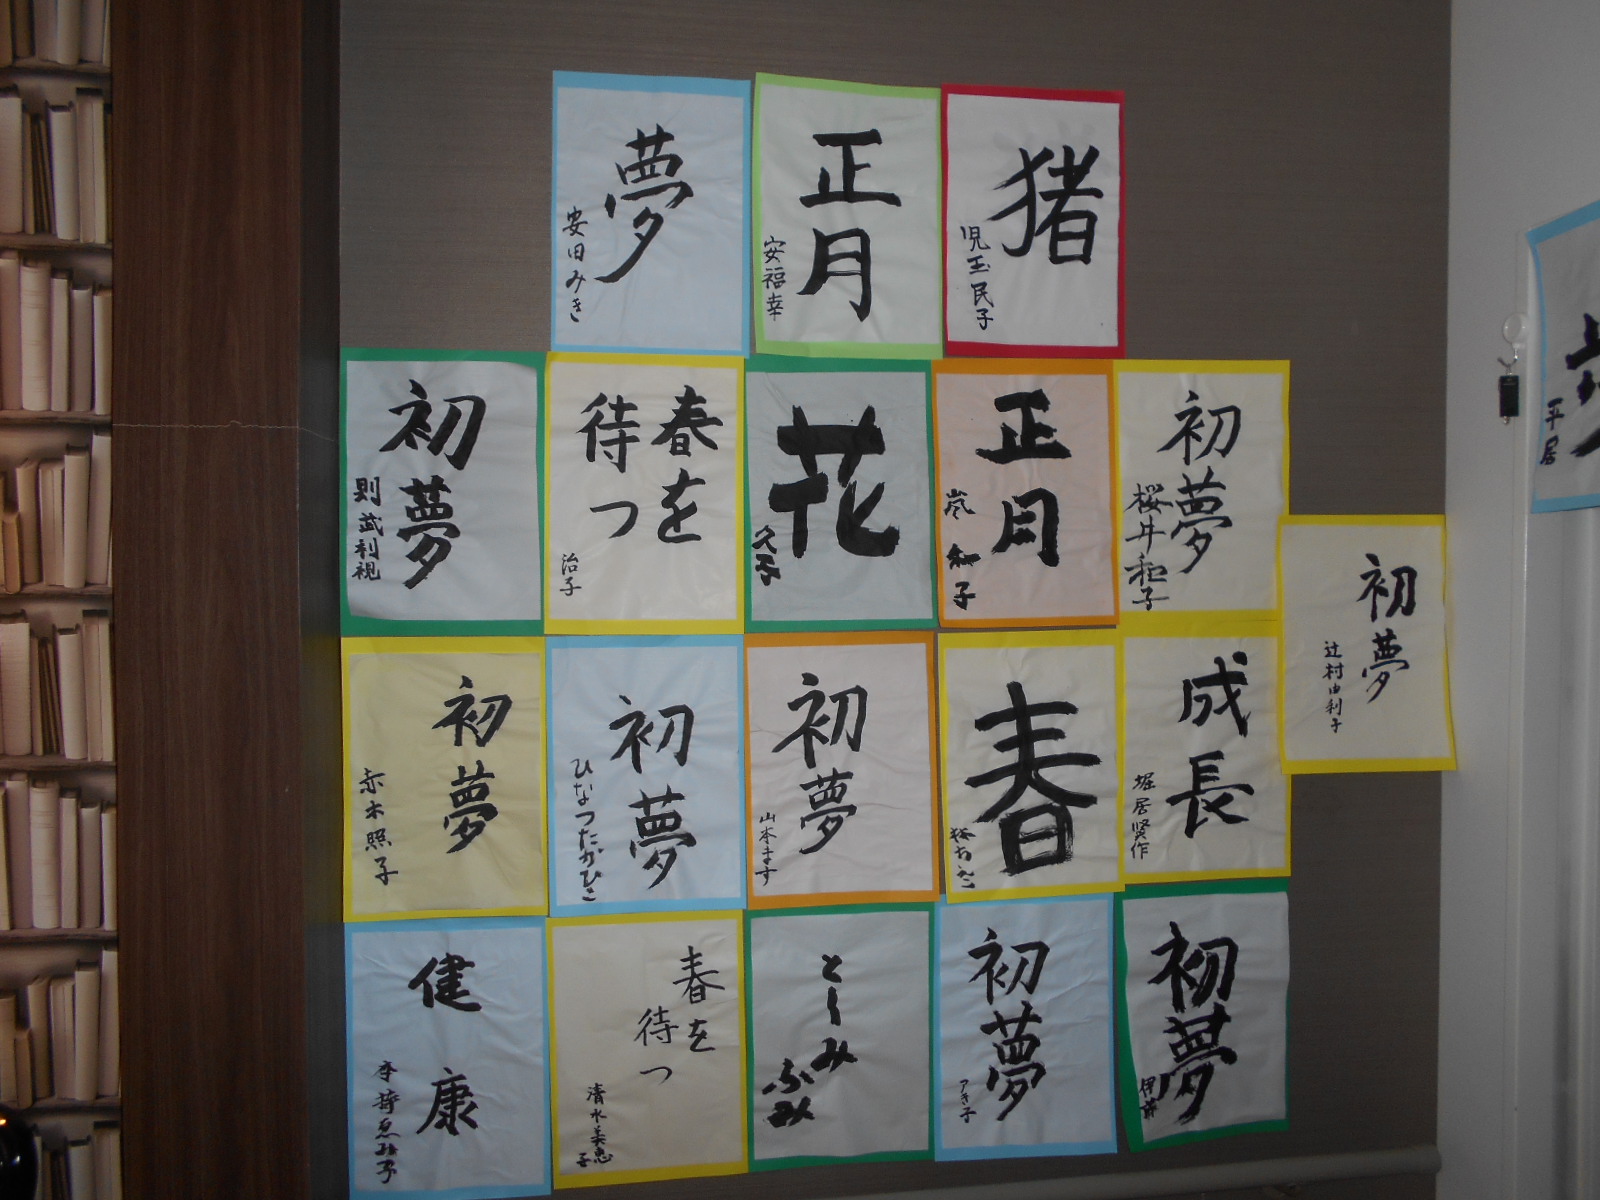 夢
安田みき
正月
安福幸
猪
児玉民子
初夢
則武利視
春を
待つ
治子
花
久子
正月
嵐和子
初夢
桜井和子
初夢
辻村由利子
初夢
赤木照子
初夢
ひなつたかひこ
初夢
山本ます
春
成長
堀居賢作
健康
春を
待つ
清水美恵子
としみ
ふみ
初夢
アキ子
初夢
平居